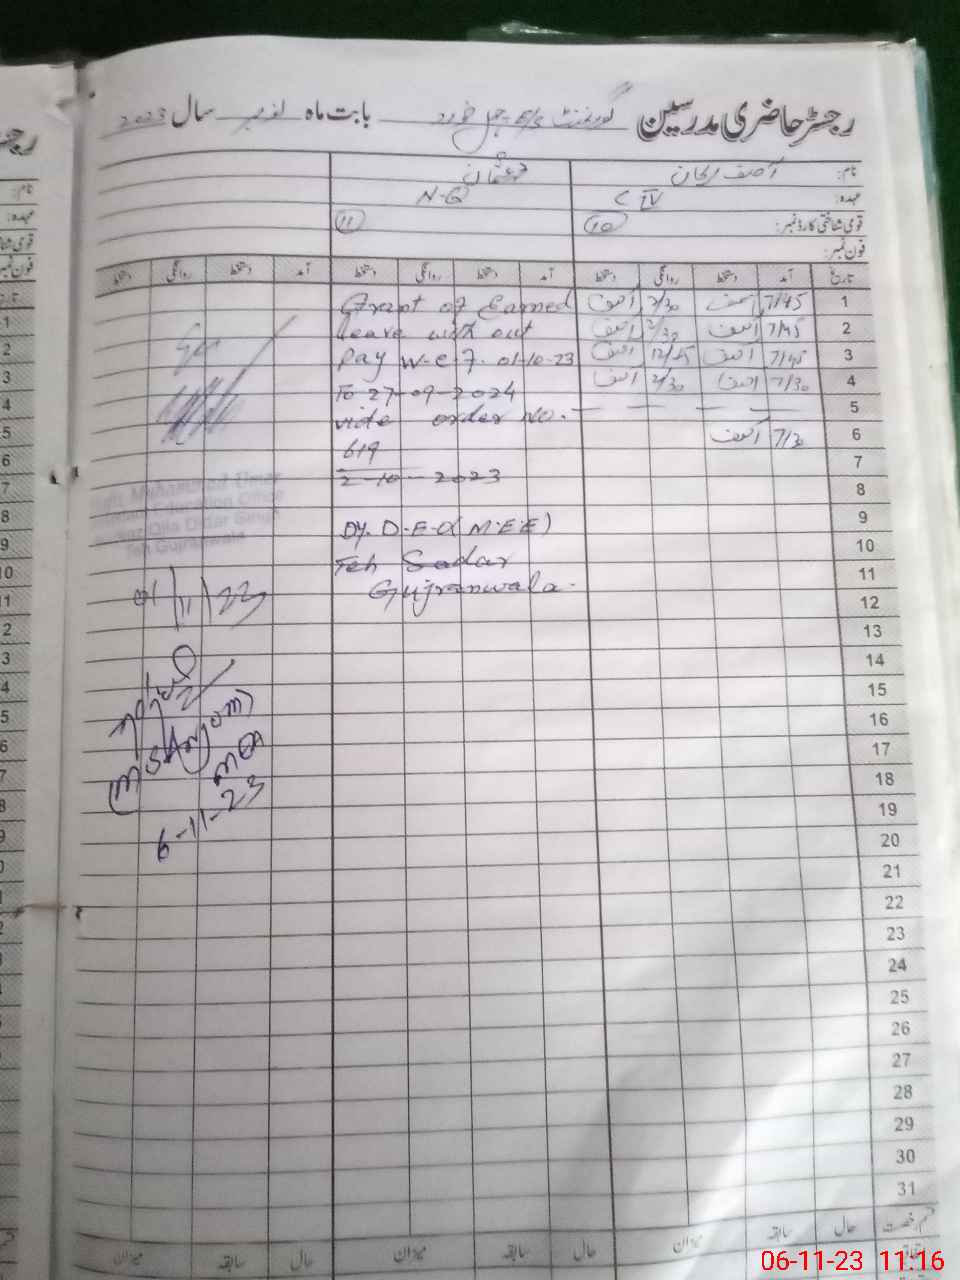 رجسٹر حاضری مدرسین گورنمنٹ بابت ماہ نومبر سال 2023
نام: آصف
عہدہ: C IV N-Q
قومی شناختی کارڈ نمبر: 10 11
فون نمبر:
تاریخ آمد دستخط روانگی دستخط آمد دستخط روانگی دستخط آمد دستخط روانگی دستخط
1 7/45 آصف 2/30 آصف
2 7/45 آصف 2/30 آصف
3 7/45 آصف 12/45 آصف
4 7/30 آصف 2/30 آصف
5
6 7/30 آصف
7
8
9
10
11
12
13
14
15
16
17
18
19
20
21
22
23
24
25
26
27
28
29
30
31
Grant of Earned
leave with out
pay w-e-f. 01-10-23
To 27-09-2024
vide order No.
619
2-10-2023
Dy. D-E-O (M-E-E)
Teh Sadar
Gujranwala-
Muhammad Umar
Education Office
Qila Didar Singh
Teh Gujranwala
01/11/23
MEA
6-11-23
حال سابقہ میزان حال سابقہ میزان حال سابقہ میزان
06-11-23 11:16